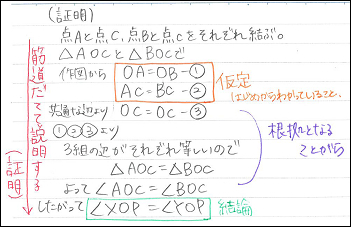 (証明)
点Aと点C、点Bと点Cをそれぞれ結ぶ。
△AOCと△BOCで
作図から OA=OB-①
AC=BC-②
仮定
(はじめからわかっていること。
共通な辺より OC=OC-③
①②③より
3組の辺がそれぞれ等しいので
△AOC=△BOC
よって∠AOC=∠BOC
したがって ∠XOP=∠YOP 結論
根拠となる
ことがら
筋道だてて説明する
(証明)